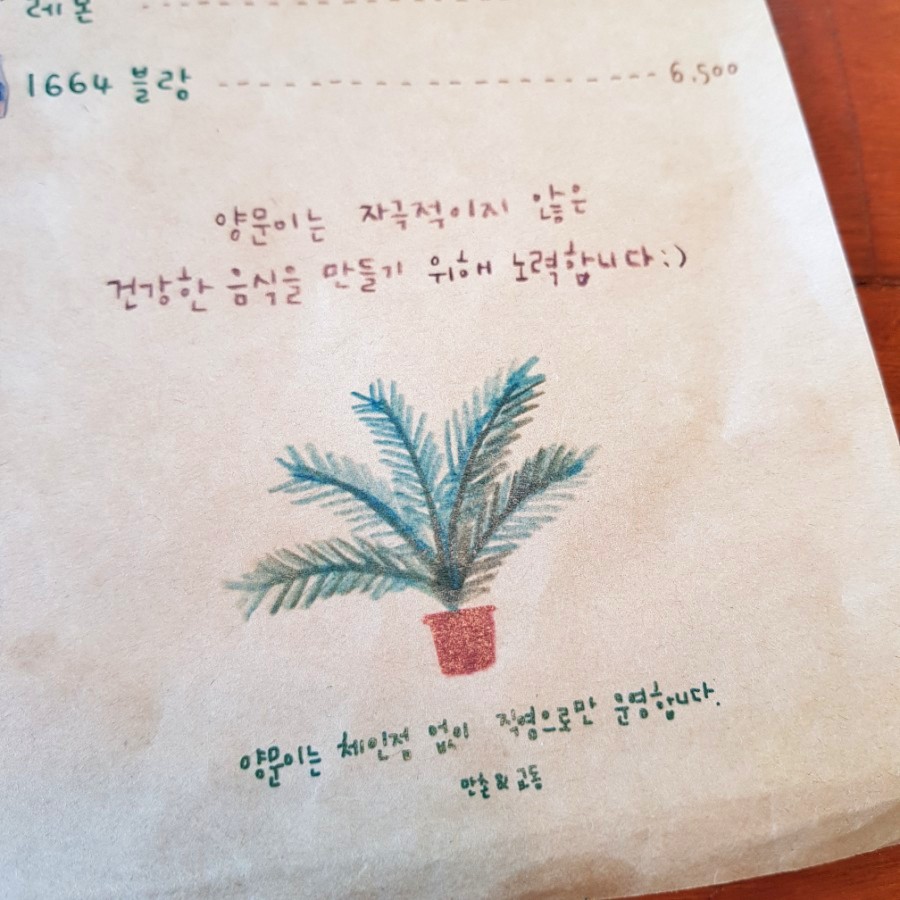 레몬
1664 블랑 ------------------- 6,500
양문이는 자극적이지 않은
건강한 음식을 만들기 위해 노력합니다:)
양문이는 체인점 없이 직영으로만 운영합니다.
만촌 & 교동